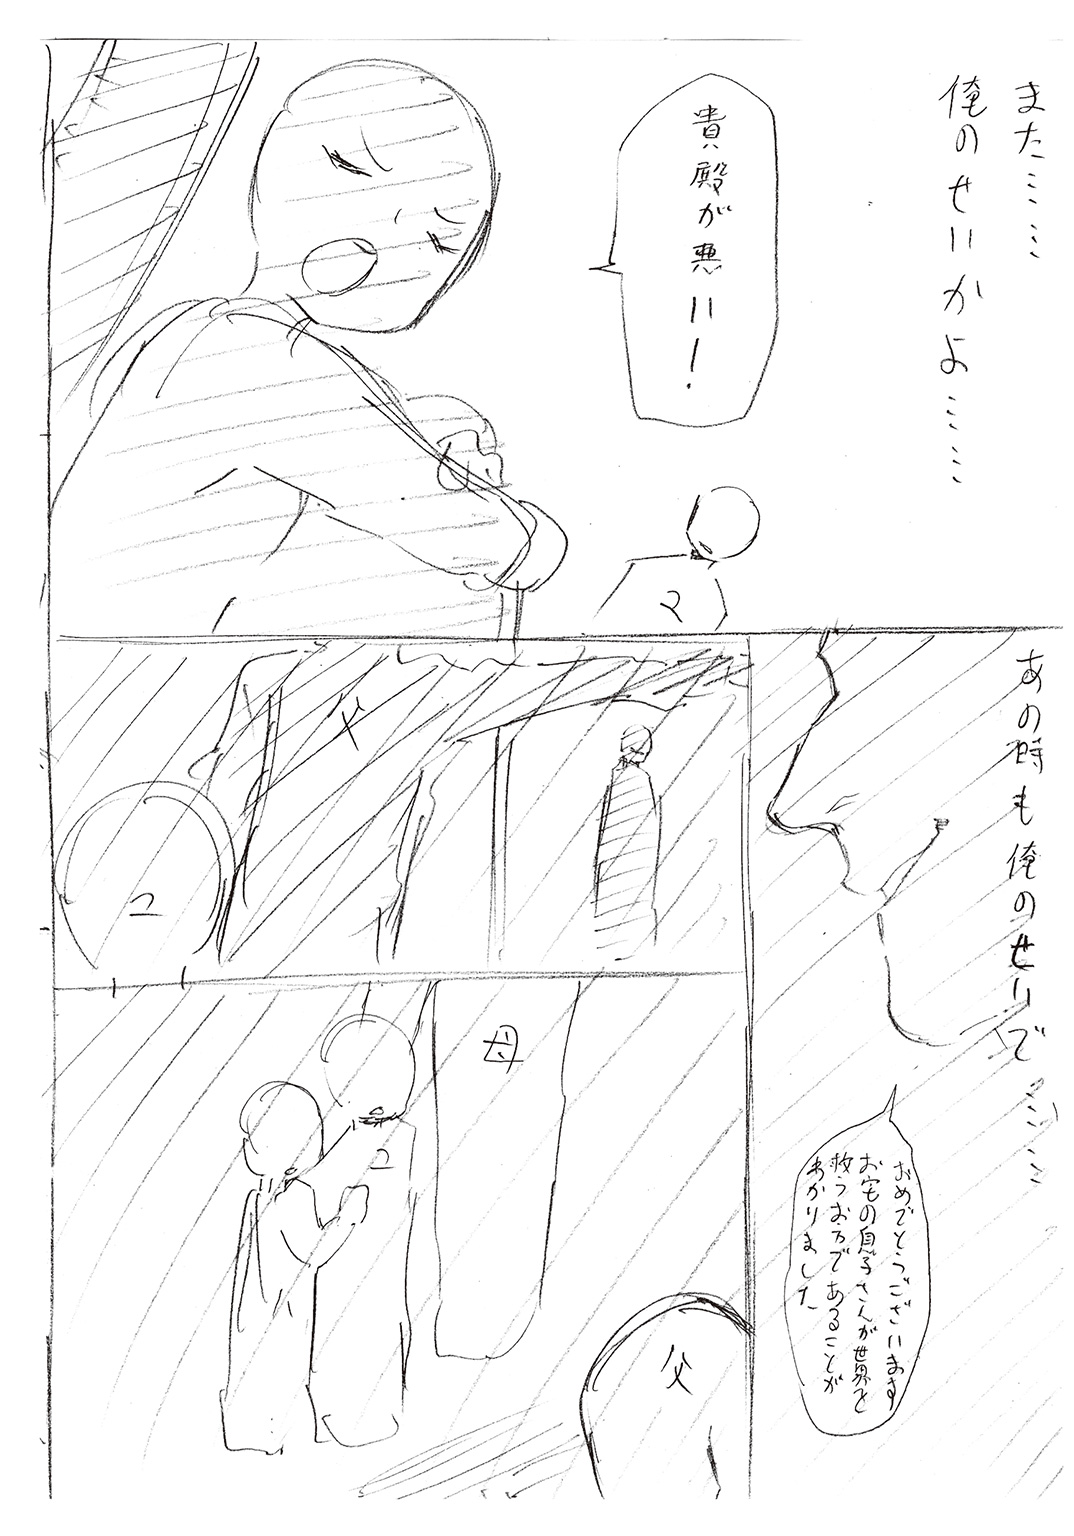 また……
俺のせいかよ……
貴殿が悪い！
マ
あの時も俺のせいで……
おめでとうございます
お宅の息子さんが世界を
救うお方であることが
わかりました
ド
ユ
母
ユ
父